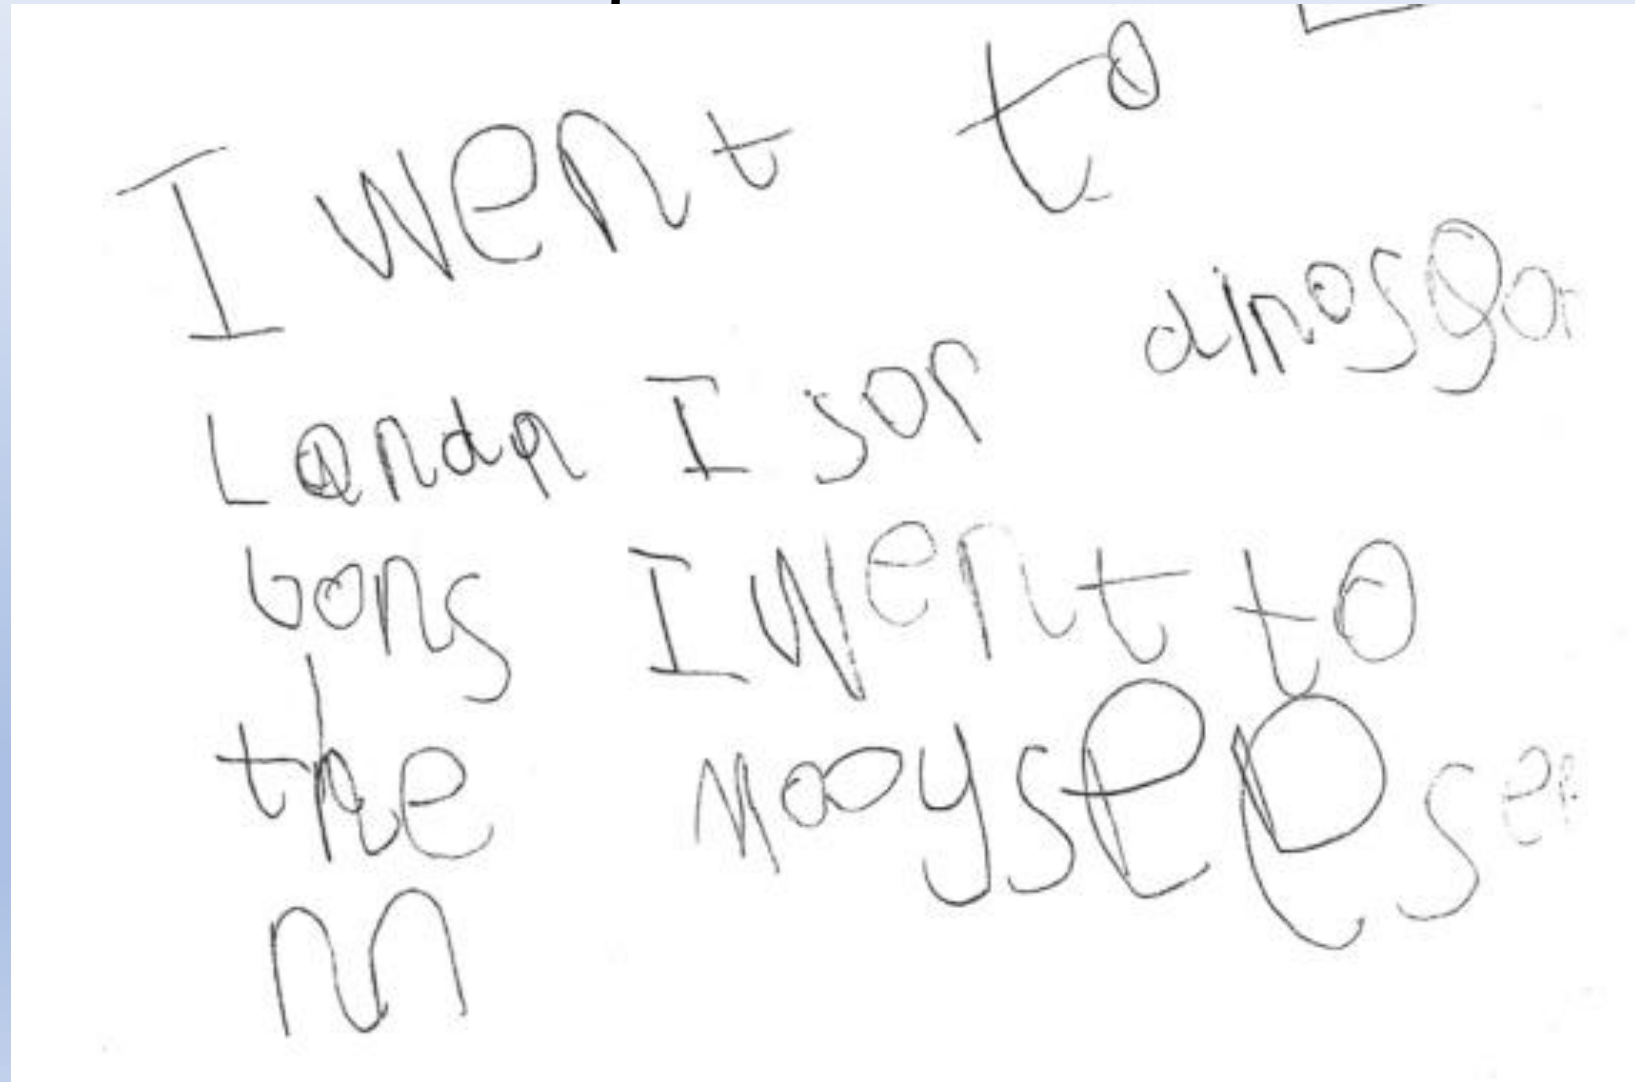 I went to
Landn I sor dinosgor
bons I went to
the
m